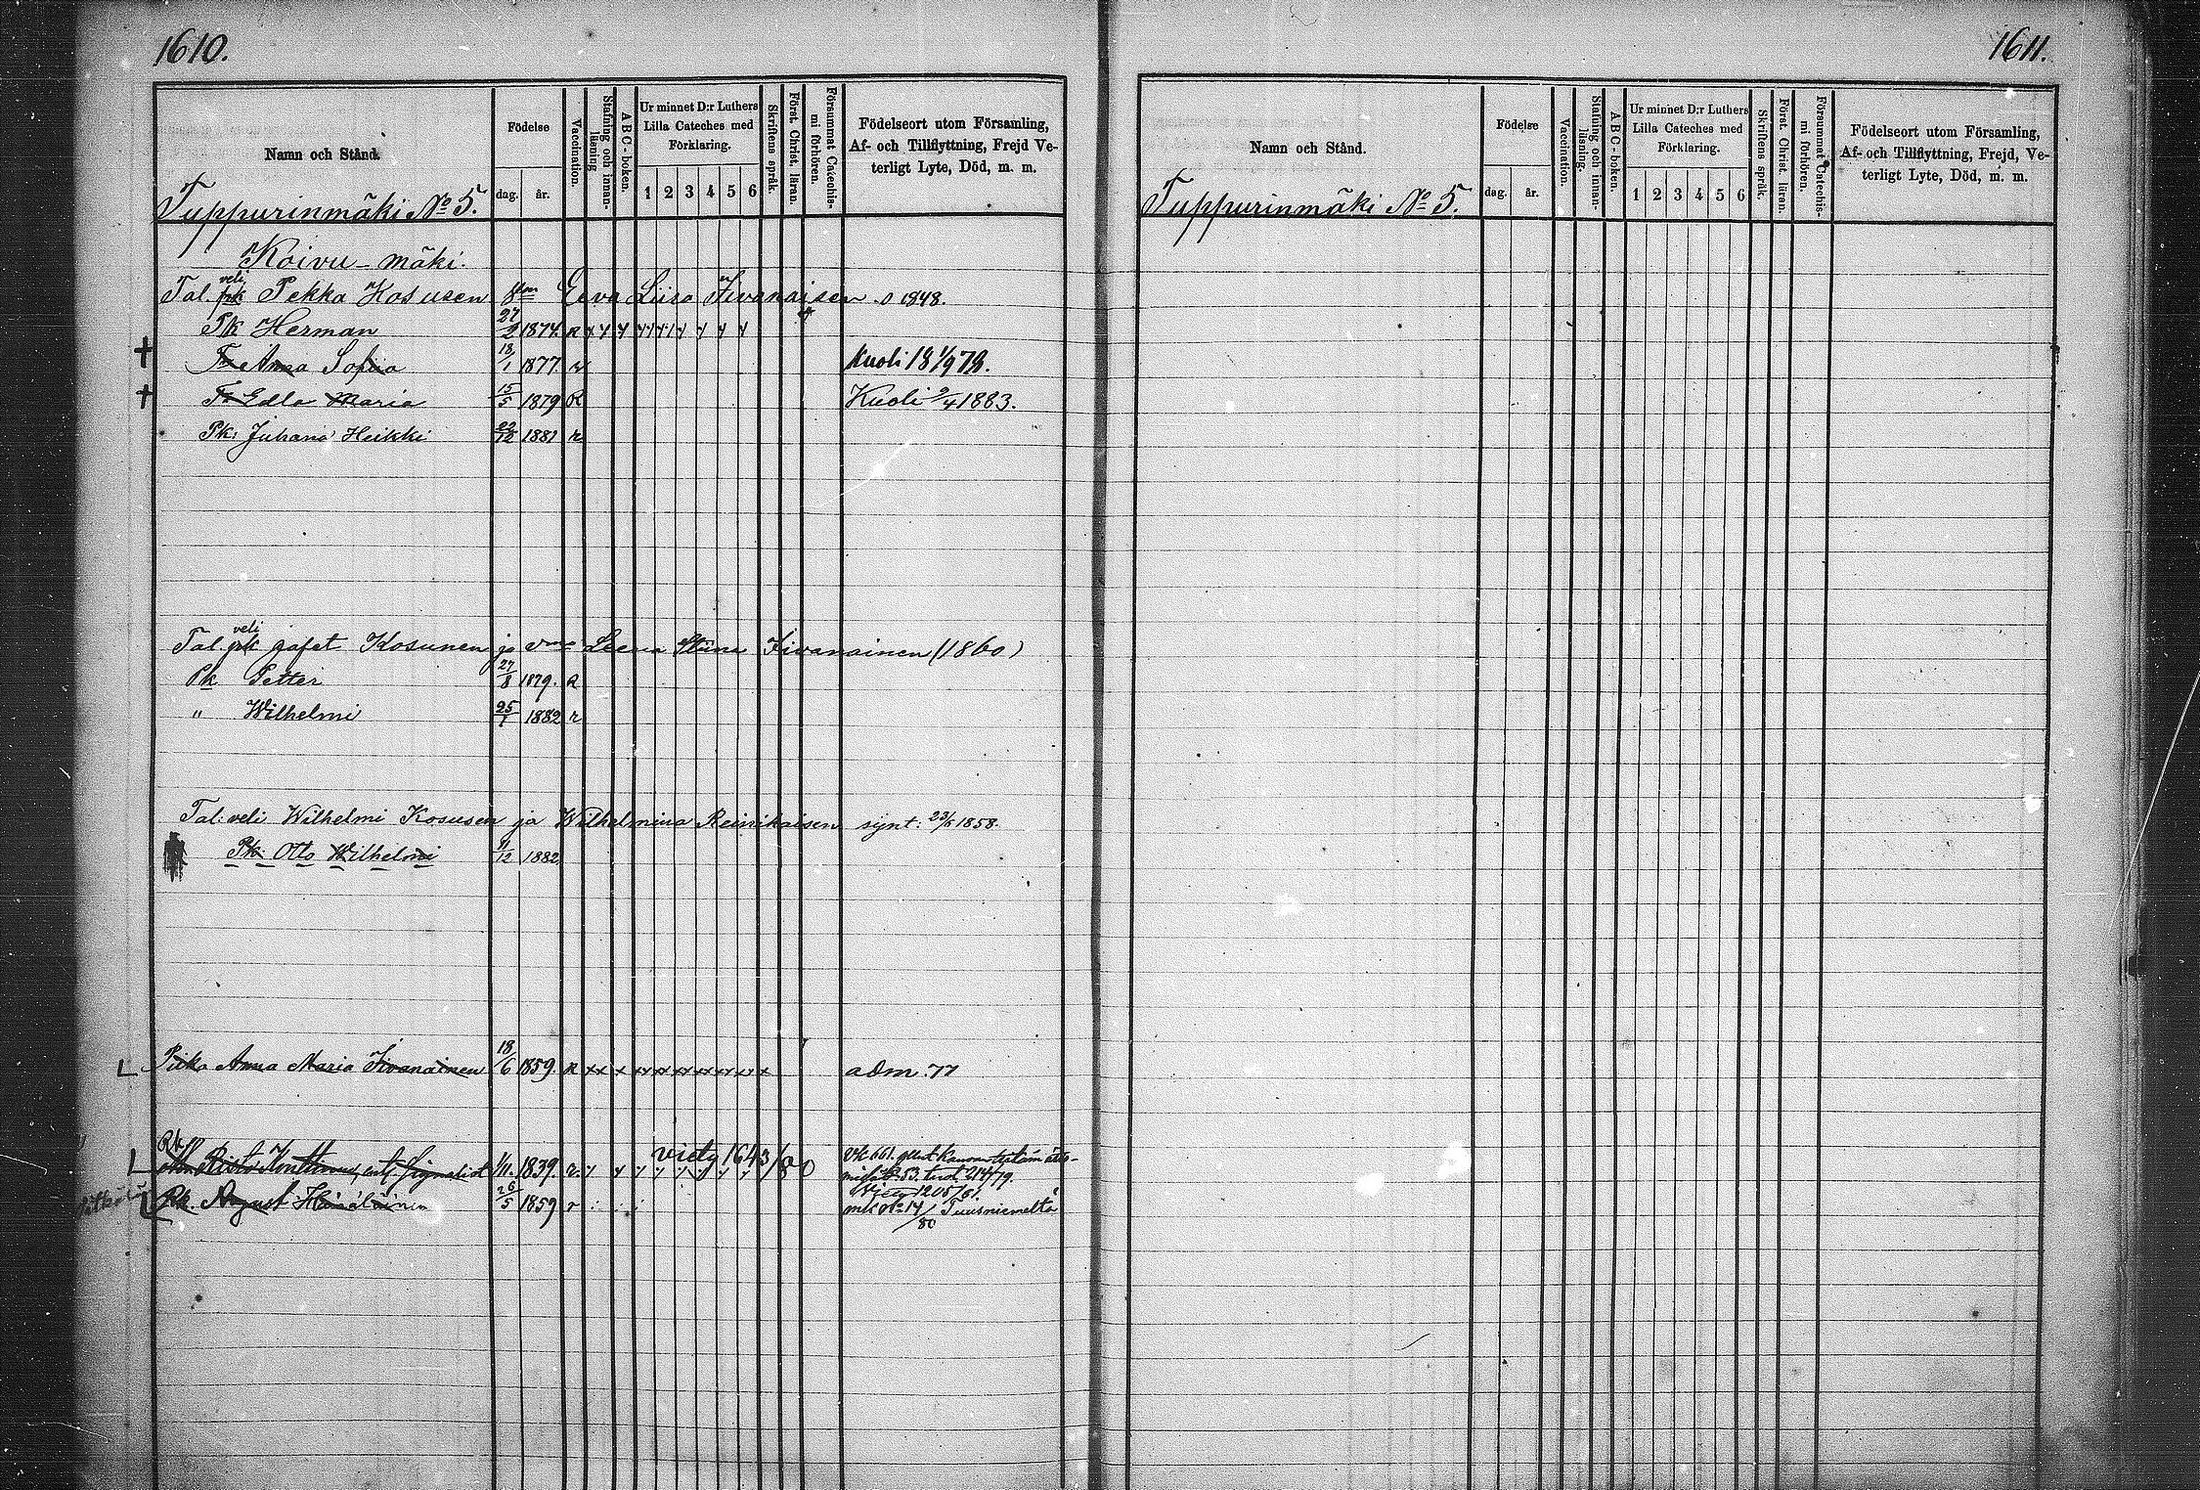 1610.
Namn och Stånd.
Födelse
dag. år.
Vaccination.
Stafning och innan-
läsning
A B C - boken.
Ur minnet D:r Luthers
Lilla Cateches med
Förklaring.
1 2 3 4 5 6
Skriftens språk.
Först. Christ. läran.
Försummat Catechis-
mi förhören.
Födelseort utom Församling,
Af- och Tillflyttning, Frejd Ve-
terligt Lyte, Död, m. m.
Tuppurinmäki No 5.
Koivu-mäki.
veli
Tal. pk Pekka Kosusen Eeva Liisa Iivanaisen o 1848.
Pk Herman 27/2 1874.
Anna Sofiia 18/1 1877. Kuoli
Edla Maria 15/5 1879 R Kuoli 9/4 1883.
Pk: Juhana Heikki 1881 r
veli
Tal. pk Kosunen ja Leena Stiina Iivanainen (1860)
Pk Petter 27/8 1879. R
" Wilhelmi 25/1 1882 r
Tal: veli Wilhelmi Kosusen ja Wilhelmina Reinikaisen synt: 23/6 1858.
Pk. Otto Wilhelmi 11/12 1882
Piika Anna Maria Iivanainen 18/6 1859. R adm. 77
viety 1643/80
1839.
Pk. August 26/5 1859 r
1205/81.
14/80 Tuusniemeltä
1611.
Namn och Stånd.
Födelse
dag. år.
Vaccination.
Stafning och innan-
läsning.
A B C - boken.
Ur minnet D:r Luthers
Lilla Cateches med
Förklaring.
1 2 3 4 5 6
Skriftens språk.
Först. Christ. läran.
Försummat Catechis-
mi förhören.
Födelseort utom Församling,
Af- och Tillflyttning, Frejd, Ve-
terligt Lyte, Död, m. m.
Tuppurinmäki No 5.